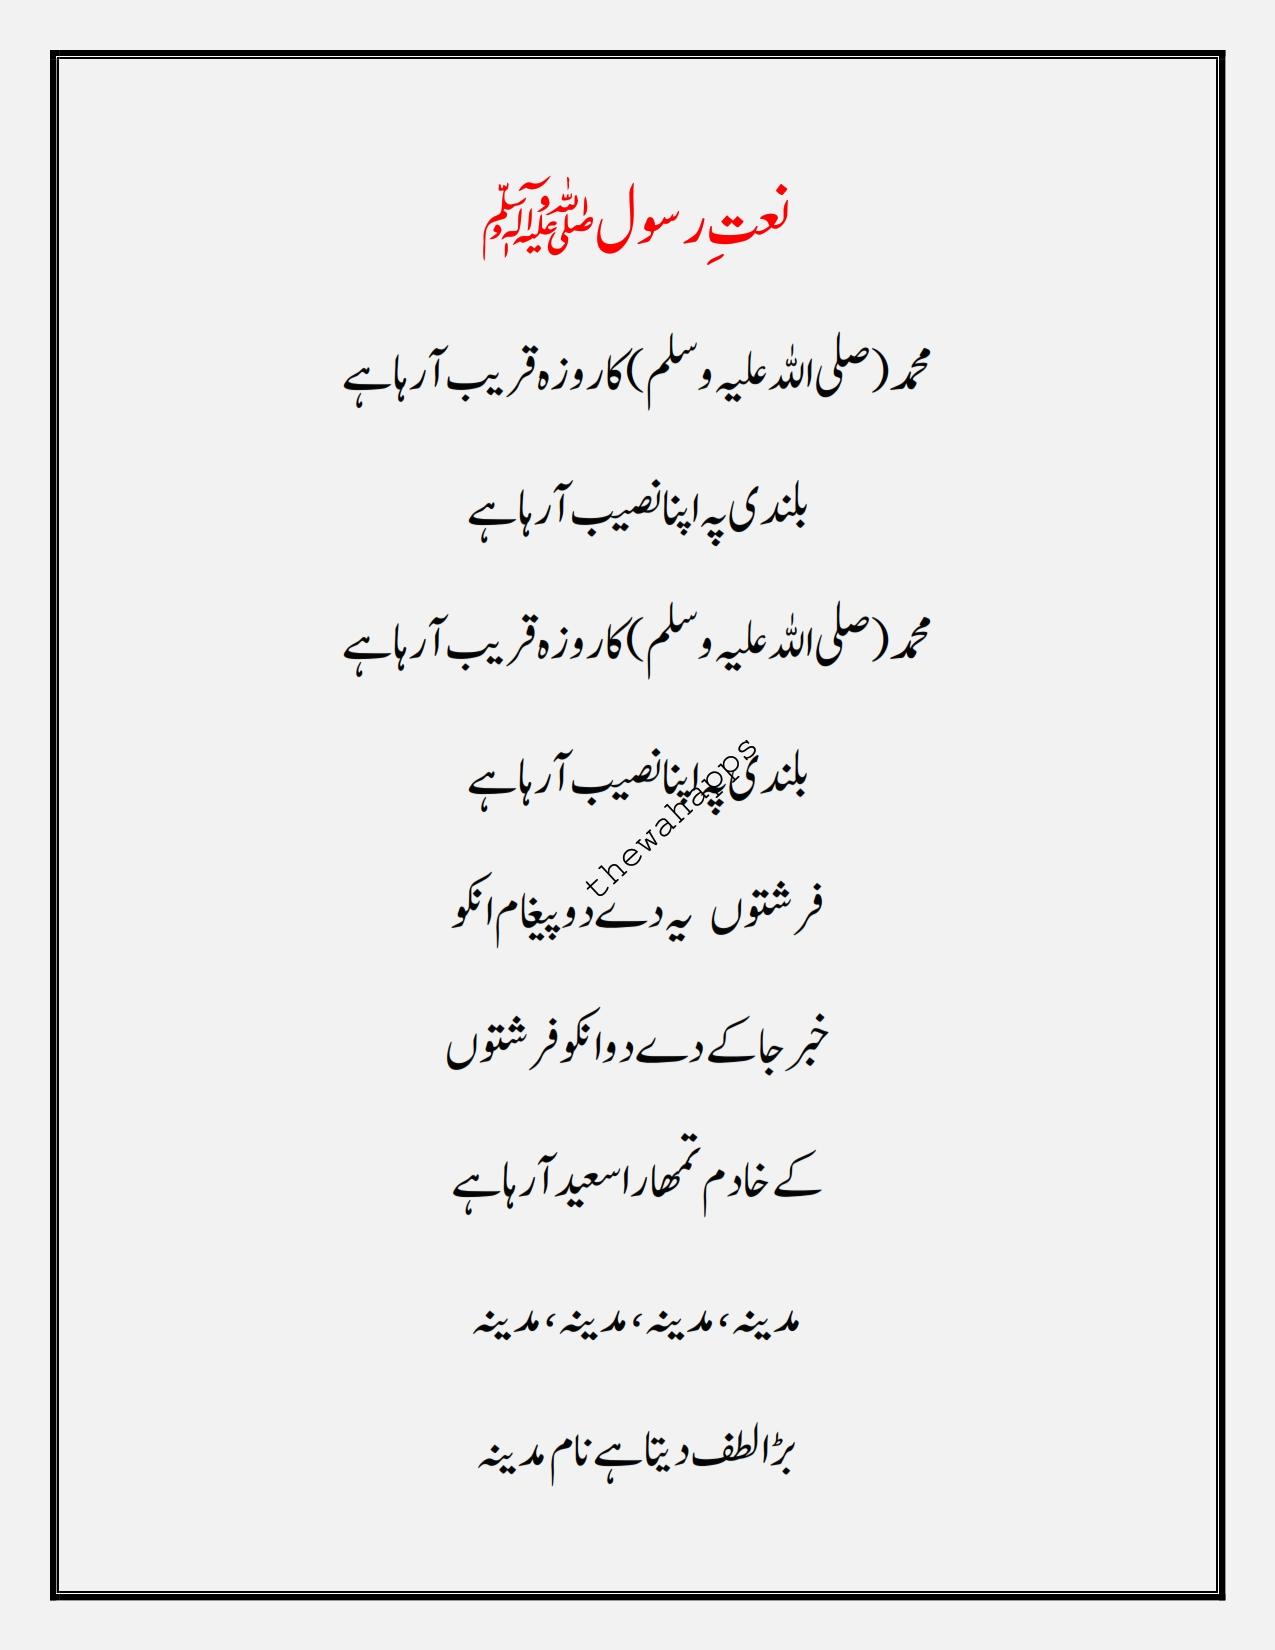 نعتِ رسول ﷺ
محمد (صلی اللہ علیہ وسلم) کا روزہ قریب آرہا ہے
بلندی پہ اپنا نصیب آرہا ہے
محمد (صلی اللہ علیہ وسلم) کا روزہ قریب آرہا ہے
بلندی پہ اپنا نصیب آرہا ہے
thewahapps
فرشتوں یہ دے دو پیغام انکو
خبر جاکے دے دو انکو فرشتوں
کے خادم تمھارا سعید آرہا ہے
مدینہ، مدینہ، مدینہ، مدینہ
بڑا لطف دیتا ہے نام مدینہ